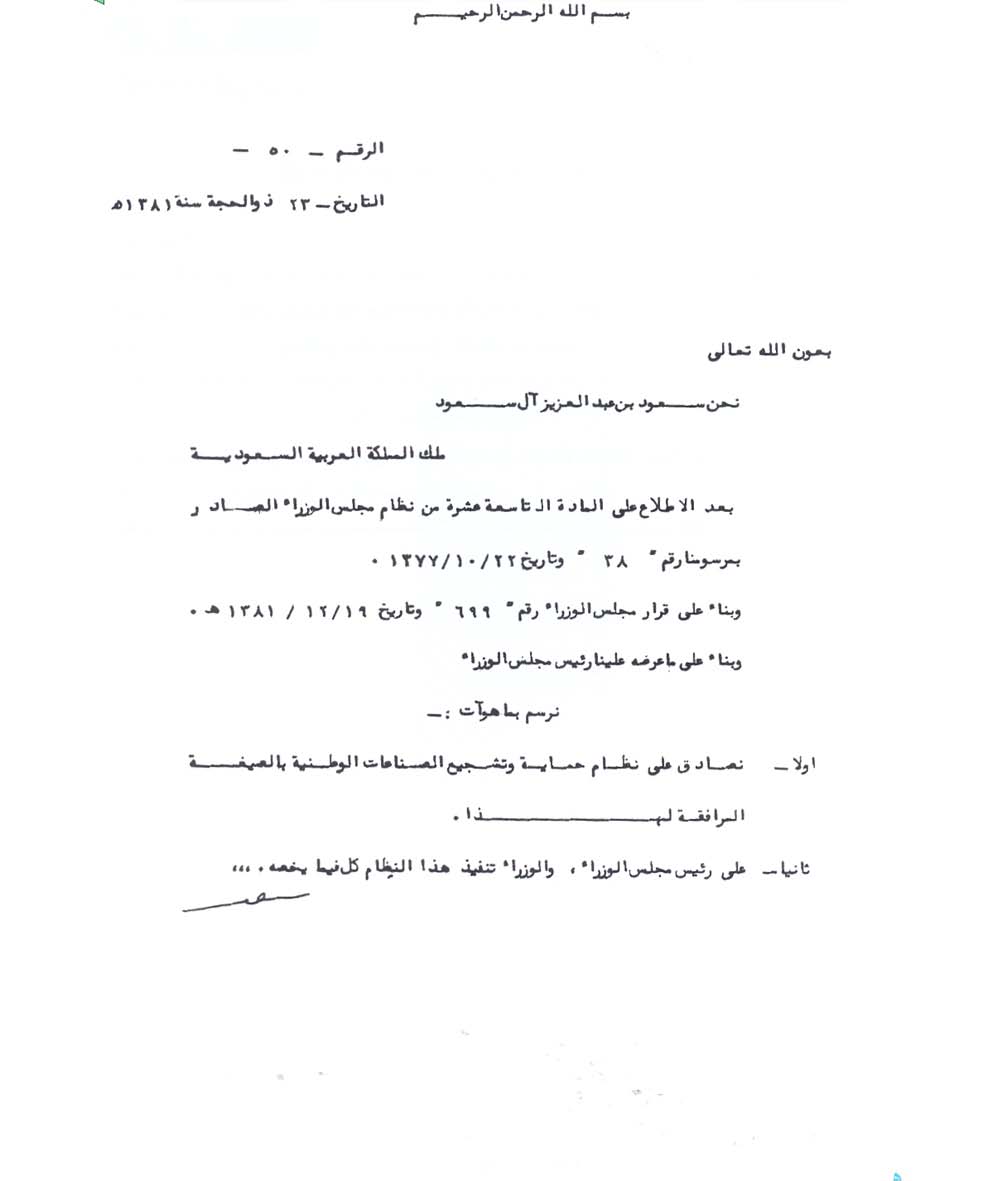 بسم الله الرحمن الرحيم
الرقم – ٥٠ –
التاريخ – ٢٣ ذوالحجة سنة ١٣٨١ه
بعون الله تعالى
نحن سعود بن عبد العزيز آل سعود
ملك المملكة العربية السعودية
بعد الاطلاع على المادة التاسعة عشرة من نظام مجلس الوزراء الصادر
بمرسومنا رقم " ٣٨ " وتاريخ ١٣٧٧/١٠/٢٢ .
وبناء على قرار مجلس الوزراء رقم " ٦٩٩ " وتاريخ ١٢/١٩ / ١٣٨١ هـ .
وبناء على ماعرضه علينا رئيس مجلس الوزراء
نرسم بما هوآت :–
اولا – نصادق على نظام حماية وتشجيع الصناعات الوطنية بالصيغة
المرافقة لهذا .
ثانيا – على رئيس مجلس الوزراء ، والوزراء تنفيذ هذا النظام كل فيما يخصه . ,,,